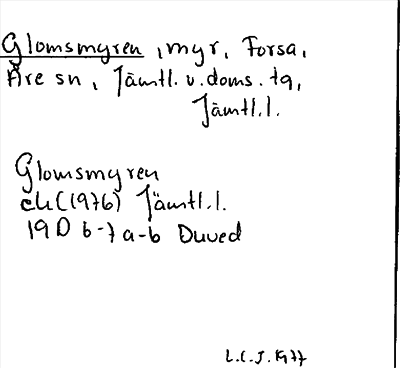 Glomsmyren, myr, Forsa,
Åre sn, Jämtl. v. doms. tg,
Jämtl.l.
Glomsmyren
ek (1976) Jämtl.l.
19D 6-7 a-b Duved
L.C.J. 1977